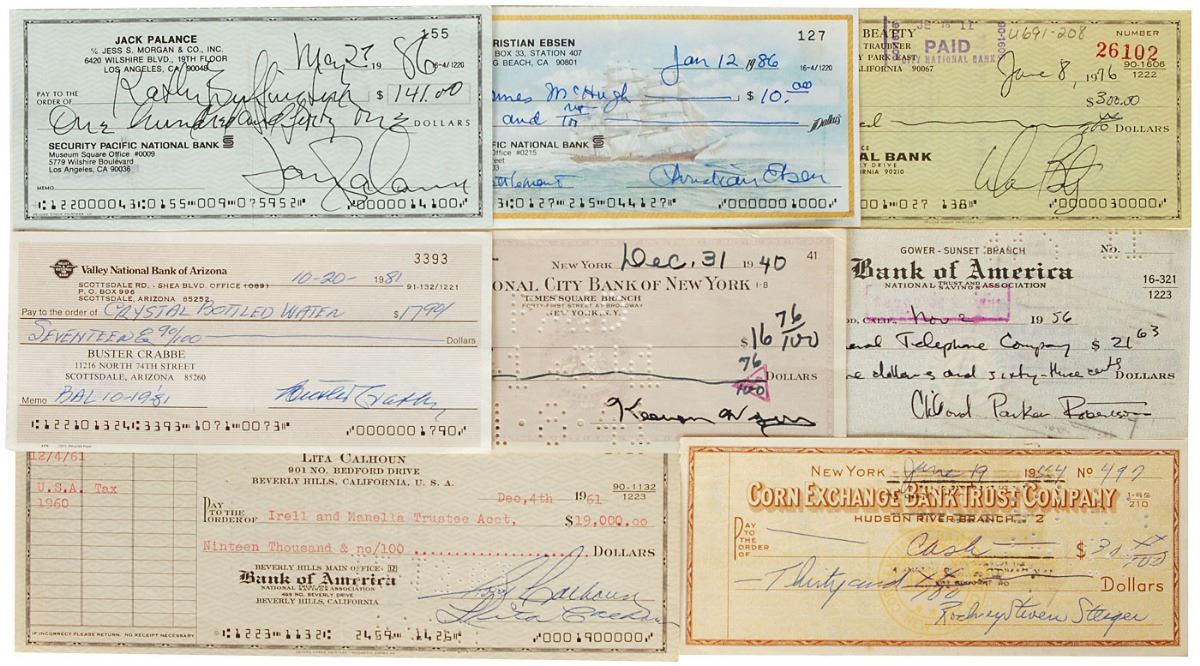 JACK PALANCE
155
℅ JESS S. MORGAN & CO., INC.
6420 WILSHIRE BLVD., 19TH FLOOR
LOS ANGELES, CA 90048
Mar 27 19 86
16-4/1220
PAY TO THE
ORDER OF
$ 141.00
One hundred and forty one
DOLLARS
SECURITY PACIFIC NATIONAL BANK
Museum Square Office #0009
5779 Wilshire Boulevard
Los Angeles, CA 90036
MEMO
Jack Palance
⑆122000043⑆0155⑈009⑈075952⑈ ⑈0000014100⑈
RISTIAN EBSEN
127
BOX 33, STATION 407
G BEACH, CA 90801
Jan 12 1986
16-4/1220
mes McHugh
$ 10.00
and no
Dollars
FIC NATIONAL BANK
Office #0215
ettlement
Christian Ebsen
3⑆0127⑈215⑈044127⑈ ⑈0000001000⑈
BEATTY
PAID
U691-208
NUMBER
26102
TRAUBNER
Y PARK EAST
ALIFORNIA 90067
NATIONAL BANK
June 8, 1976
90-1606
1222
$300.00
DOLLARS
AL BANK
Y DRIVE
FORNIA 90210
1⑈027 138⑈ ⑈0000030000⑈
Valley National Bank of Arizona
3393
SCOTTSDALE RD. - SHEA BLVD. OFFICE (089)
P. O. BOX 996
SCOTTSDALE, ARIZONA 85252
10-20- 1981
91-132/1221
Pay to the order of CRYSTAL BOTTLED WATER $17.90
SEVENTEEN & 90/100 Dollars
BUSTER CRABBE
11216 NORTH 74TH STREET
SCOTTSDALE, ARIZONA 85260
Memo BAL 10-1981
Buster Crabbe
⑆122101324⑆3393 1071⑈0073⑈ ⑈0000001790⑈
NEW YORK Dec. 31 1940 41
ONAL CITY BANK OF NEW YORK 1-8
TIMES SQUARE BRANCH
FORTY-FIRST STREET at BROADWAY
NEW YORK, N.Y.
$16 76/100
76/100 DOLLARS
Keenan Wynn
GOWER - SUNSET BRANCH NO.
Bank of America
NATIONAL TRUST AND SAVINGS ASSOCIATION
16-321
1223
OD, CALIF. Nov 2 1956
ral Telephone Company $ 21 63
e dollars and sixty-three cents DOLLARS
Clifford Parker Robertson
12/4/61
U.S.A. Tax
1960
LITA CALHOUN
901 NO. BEDFORD DRIVE
BEVERLY HILLS, CALIFORNIA, U. S. A.
90-1132
1223
Dec, 4th 1961
PAY
TO THE
ORDER OF Irell and Manella Trustee Acct, $19,000.00
Ninteen Thousand & no/100 DOLLARS
BEVERLY HILLS MAIN OFFICE
Bank of America
NATIONAL TRUST AND SAVINGS ASSOCIATION
BEVERLY HILLS, CALIFORNIA
Lita Calhoun
IF INCORRECT PLEASE RETURN. NO RECEIPT NECESSARY.
⑆1223⑈1132⑆ 2459⑈1426⑈ ⑈0001900000⑈
NEW YORK June 19 1944 No 497
CORN EXCHANGE BANK TRUST COMPANY
1-45
210
HUDSON RIVER BRANCH
PAY
TO THE
ORDER OF Cash $ 30 xx/100
Thirty and xx/100 Dollars
Rodney Steven Steiger